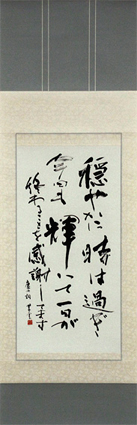 穏やかに時は過ぎ
今日も輝いて一日が
終わることを感謝します